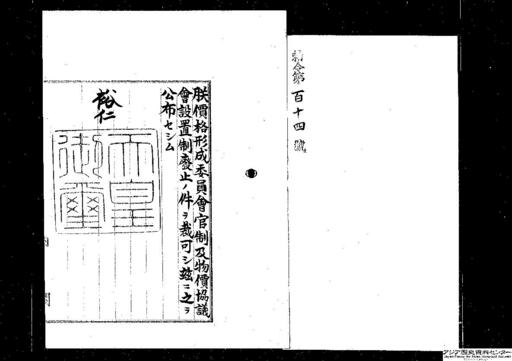 勅令第百十四號
朕價格形成委員會官制及物價協議
會設置制廢止ノ件ヲ裁可シ茲ニ之ヲ
公布セシム
裕仁
天皇御璽
内閣
アジア歴史資料センター